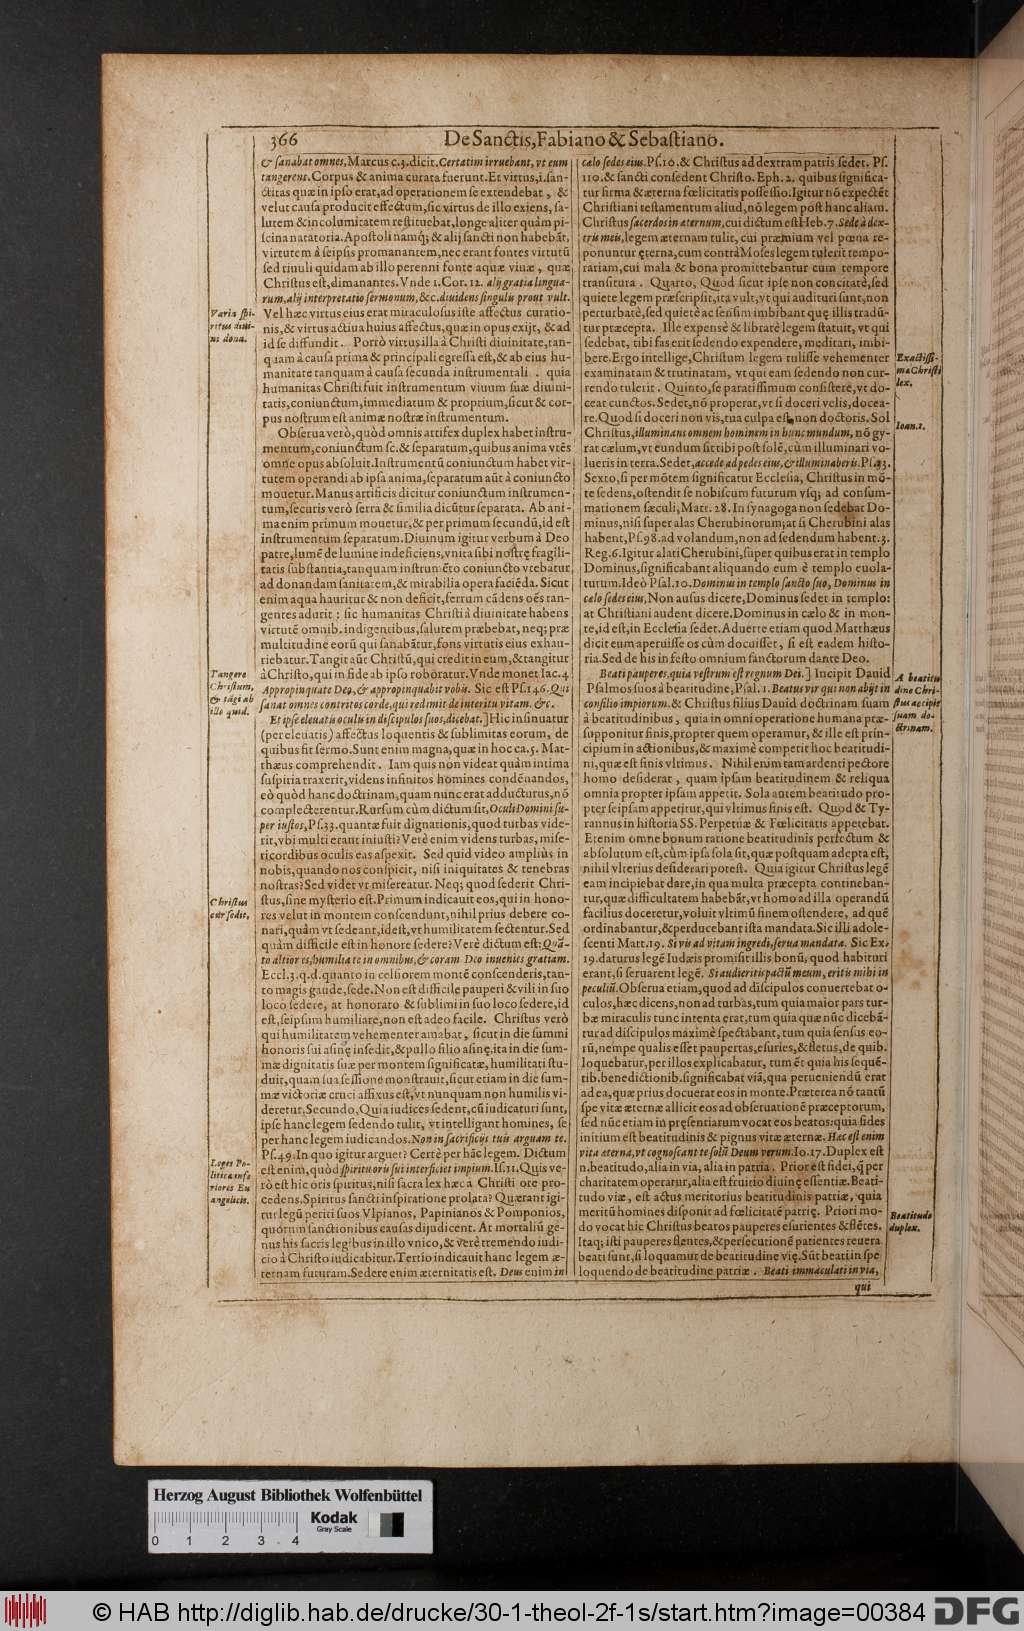 366 De Sanctis, Fabiano & Sebastiano.
& ſanabat omnes, Marcus c. 3. dicit. Certatim irruebant, vt eum
tangerent. Corpus & anima curata fuerunt. Et virtus, i. ſan-
ctitas quæ in ipſo erat, ad operationem ſe extendebat, &
velut cauſa producit effectum, ſic virtus de illo exiens, ſa-
lutem & incolumitatem reſtituebat, longe aliter quàm pi-
ſcina natatoria. Apoſtoli namq; & alij ſancti non habebāt,
virtutem à ſeipſis promanantem, nec erant fontes virtutū
ſed riuuli quidam ab illo perenni fonte aquæ viuæ, quæ
Chriſtus eſt, dimanantes. Vnde 1. Cor. 12. alij gratia lingua-
rum, alij interpretatio ſermonum, &c. diuidens ſingulis prout vult.
Vel hæc virtus eius erat miraculoſus iſte affectus curatio-
nis, & virtus actiua huius affectus, quæ in opus exijt, & ad
id ſe diffundit. Porrò virtus illa à Chriſti diuinitate, tan-
quam à cauſa prima & principali egreſſa eſt, & ab eius hu-
manitate tanquam à cauſa ſecunda inſtrumentali. quia
humanitas Chriſti fuit inſtrumentum viuum ſuæ diuini-
tatis, coniunctum, immediatum & proprium, ſicut & cor-
pus noſtrum eſt animæ noſtræ inſtrumentum.
Obſerua verò, quòd omnis artifex duplex habet inſtru-
mentum, coniunctum ſc. & ſeparatum, quibus anima vtēs
omne opus abſoluit. Inſtrumentū coniunctum habet vir-
tutem operandi ab ipſa anima, ſeparatum aūt à coniuncto
mouetur. Manus artificis dicitur coniunctum inſtrumen-
tum, ſecuris verò ſerra & ſimilia dicūtur ſeparata. Ab ani-
ma enim primum mouetur, & per primum ſecundū, id eſt
inſtrumentum ſeparatum. Diuinum igitur verbum à Deo
patre, lumē de lumine indeficiens, vnita ſibi noſtrę fragili-
tatis ſubſtantia, tanquam inſtrumēto coniuncto vtebatur,
ad donandam ſanitatem, & mirabilia opera faciēda. Sicut
enim aqua hauritur & non deficit, ferrum cādens oēs tan-
gentes adurit; ſic humanitas Chriſti à diuinitate habens
virtutē omnib. indigentibus, ſalutem præbebat, neq; præ
multitudine eorū qui ſanabātur, fons virtutis eius exhau-
riebatur. Tangit aūt Chriſtū, qui credit in eum, & tangitur
à Chriſto, qui in fide ab ipſo roboratur. Vnde monet Iac. 4
Appropinquate Deo, & appropinquabit vobis. Sic eſt Pſ. 146. Qui
ſanat omnes contritos corde, qui redimit de interitu vitam. &c.
Et ipſe eleuatis oculis in diſcipulos ſuos, dicebat.] Hic inſinuatur
(per eleuatis) affectus loquentis & ſublimitas eorum, de
quibus fit ſermo. Sunt enim magna, quæ in hoc ca. 5. Mat-
thæus comprehendit. Iam quis non videat quàm intima
ſuſpiria traxerit, videns infinitos homines condēnandos,
eò quòd hanc doctrinam, quam nunc erat adducturus, nō
complecterentur. Rurſum cùm dictum ſit, Oculi Domini ſu-
per iuſtos, Pſ. 33. quantæ fuit dignationis, quod turbas vide-
rit, vbi multi erant iniuſti? Verè enim videns turbas, miſe-
ricordibus oculis eas aſpexit. Sed quid video ampliùs in
nobis, quando nos conſpicit, niſi iniquitates & tenebras
noſtras? Sed videt vt miſereatur. Neq; quod ſederit Chri-
ſtus, ſine myſterio eſt. Primum indicauit eos, qui in hono-
res velut in montem conſcendunt, nihil prius debere co-
nari, quàm vt ſedeant, id eſt, vt humilitatem ſectentur. Sed
quàm difficile eſt in honore ſedere? Verè dictum eſt: Quā-
to altior es, humilia te in omnibus, & coram Deo inuenies gratiam.
Eccl. 3. q. d. quanto in celſiorem montē conſcenderis, tan-
to magis gaude, ſede. Non eſt difficile pauperi & vili in ſuo
loco ſedere, at honorato & ſublimi in ſuo loco ſedere, id
eſt, ſeipſum humiliare, non eſt adeo facile. Chriſtus verò
qui humilitatem vehementer amabat, ſicut in die ſummi
honoris ſui aſinę inſedit, & pullo filio aſinę, ita in die ſum-
mæ dignitatis ſuæ per montem ſignificatæ, humilitati ſtu-
duit, quam ſua ſeſſione monſtrauit, ſicut etiam in die ſum-
mæ victoriæ cruci affixus eſt, vt nunquam non humilis vi-
deretur, Secundo, Quia iudices ſedent, cū iudicaturi ſunt,
ipſe hanc legem ſedendo tulit, vt intelligant homines, ſe
per hanc legem iudicandos. Non in ſacrificijs tuis arguam te.
Pſ. 49. In quo igitur arguet? Certè per hāc legem. Dictum
eſt enim, quòd ſpiritu oris ſui interficiet impium. Iſ. 11. Quis ve-
rò eſt hic oris ſpiritus, niſi ſacra lex hæc à Chriſti ore pro-
cedens. Spiritus ſancti inſpiratione prolata? Quærant igi-
tur legū periti ſuos Vlpianos, Papinianos & Pomponios,
quorum ſanctionibus cauſas dijudicent. At mortaliū ge-
nus his ſacris legibus in illo vnico, & verè tremendo iudi-
cio à Chriſto iudicabitur. Tertio indicauit hanc legem æ-
ternam futuram. Sedere enim æternitatis eſt. Deus enim in
Varia ſpi-
ritus diui-
ni dona.
Tangere
Chriſtum,
& tāgi ab
illo quid.
Chriſtus
cur ſedit.
Leges Po-
litica infe
riores Eu
angelicis.
cælo ſedes eius. Pſ. 10. & Chriſtus ad dextram patris ſedet. Pſ.
110. & ſancti conſedent Chriſto. Eph. 2. quibus ſignifica-
tur firma & æterna fœlicitatis poſſeſſio. Igitur nō expectēt
Chriſtiani teſtamentum aliud, nō legem poſt hanc aliam.
Chriſtus ſacerdos in æternum, cui dictum eſt Heb. 7. Sede à dex-
tris meis, legem æternam tulit, cui præmium vel pœna re-
ponuntur ęterna, cum contrà Moſes legem tulerit tempo-
rariam, cui mala & bona promittebantur cum tempore
tranſitura. Quarto, Quod ſicut ipſe non concitatè, ſed
quiete legem præſcripſit, ita vult, vt qui audituri ſunt, non
perturbatè, ſed quietè ac ſenſim imbibant quę illis tradū-
tur præcepta. Ille expensè & libratè legem ſtatuit, vt qui
ſedebat, tibi fas erit ſedendo expendere, meditari, imbi-
bere. Ergo intellige, Chriſtum legem tuliſſe vehementer
examinatam & trutinatam, vt qui eam ſedendo non cur-
rendo tulerit. Quinto, ſe paratiſſimum conſiſtere, vt do-
ceat cunctos. Sedet, nō properat, vt ſi doceri velis, docea-
re. Quod ſi doceri non vis, tua culpa eſt, non doctoris. Sol
Chriſtus, illuminans omnem hominem in hunc mundum, nō gy-
rat cælum, vt eundum ſit tibi poſt ſolē, cùm illuminari vo-
lueris in terra. Sedet, accede ad pedes eius, & illuminaberis. Pſ. 33.
Sexto, ſi per mōtem ſignificatur Eccleſia, Chriſtus in mō-
te ſedens, oſtendit ſe nobiſcum futurum vſq; ad conſum-
mationem ſæculi, Matt. 28. In ſynagoga non ſedebat Do-
minus, niſi ſuper alas Cherubinorum; at ſi Cherubini alas
habent, Pſ. 98. ad volandum, non ad ſedendum habent. 3.
Reg. 6. Igitur alati Cherubini, ſuper quibus erat in templo
Dominus, ſignificabant aliquando eum è templo euola-
turum. Ideò Pſal. 10. Dominus in templo ſancto ſuo, Dominus in
cælo ſedes eius, Non auſus dicere, Dominus ſedet in templo:
at Chriſtiani audent dicere. Dominus in cælo & in mon-
te, id eſt, in Eccleſia ſedet. Aduerte etiam quod Matthæus
dicit eum aperuiſſe os cùm docuiſſet, ſi eſt eadem hiſto-
ria. Sed de his in feſto omnium ſanctorum dante Deo.
Beati pauperes, quia veſtrum eſt regnum Dei.] Incipit Dauid
Pſalmos ſuos à beatitudine, Pſal. 1. Beatus vir qui non abijt in
conſilio impiorum. & Chriſtus filius Dauid doctrinam ſuam
à beatitudinibus, quia in omni operatione humana præ-
ſupponitur finis, propter quem operamur, & ille eſt prin-
cipium in actionibus, & maximè competit hoc beatitudi-
ni, quæ eſt finis vltimus. Nihil enim tam ardenti pectore
homo deſiderat, quam ipſam beatitudinem & reliqua
omnia propter ipſam appetit. Sola autem beatitudo pro-
pter ſeipſam appetitur, qui vltimus finis eſt. Quod & Ty-
rannus in hiſtoria SS. Perpetuæ & Fœlicitatis appetebat.
Etenim omne bonum ratione beatitudinis perfectum &
abſolutum eſt, cùm ipſa ſola ſit, quæ poſtquam adepta eſt,
nihil vlterius deſiderari poteſt. Quia igitur Chriſtus legē
eam incipiebat dare, in qua multa præcepta contineban-
tur, quæ difficultatem habebāt, vt homo ad illa operandū
facilius doceretur, voluit vltimū finem oſtendere, ad quē
ordinabantur, & perducebant iſta mandata. Sic illi adole-
ſcenti Matt. 19. Si vis ad vitam ingredi, ſerua mandata. Sic Ex.
19. daturus legē Iudæis promiſit illis bonū, quod habituri
erant, ſi ſeruarent legē. Si audieritis pactū meum, eritis mihi in
peculiū. Obſerua etiam, quod ad diſcipulos conuertebat o-
culos, hæc dicens, non ad turbas, tum quia maior pars tur-
bæ miraculis tunc intenta erat, tum quia quæ nūc dicebā-
tur ad diſcipulos maximè ſpectabant, tum quia ſenſus eo-
rū, nempe qualis eſſet paupertas, eſuries, & fletus, de quib.
loquebatur, per illos explicabatur, tum ēt quia his ſequē-
tib. benedictionib. ſignificabat viā, qua perueniendū erat
ad ea, quæ prius docuerat eos in monte. Præterea nō tantū
ſpe vitæ æternæ allicit eos ad obſeruationē præceptorum,
ſed nūc etiam in pręſentiarum vocat eos beatos: quia fides
initium eſt beatitudinis & pignus vitæ æternæ. Hæc eſt enim
vita æterna, vt cognoſcant te ſolū Deum verum. Io. 17. Duplex eſt
n. beatitudo, alia in via, alia in patria. Prior eſt fidei, q̄ per
charitatem operatur, alia eſt fruitio diuinę eſſentiæ. Beati-
tudo viæ, eſt actus meritorius beatitudinis patriæ, quia
meritū homines diſponit ad fœlicitatē patrię. Priori mo-
do vocat hic Chriſtus beatos pauperes eſurientes & flētes.
Itaq; iſti pauperes flentes, & perſecutionē patientes reuera
beati ſunt, ſi loquamur de beatitudine vię. Sūt beati in ſpe
loquendo de beatitudine patriæ. Beati immaculati in via,
qui
Exactiſſi-
ma Chriſti
lex.
Ioan. 1.
A beatitu
dine Chri-
ſtus accipit
ſuam do-
ctrinam.
Beatitudo
duplex.
Herzog August Bibliothek Wolfenbüttel
Kodak
Gray Scale
0 1 2 3 4
© HAB http://diglib.hab.de/drucke/30-1-theol-2f-1s/start.htm?image=00384
DFG